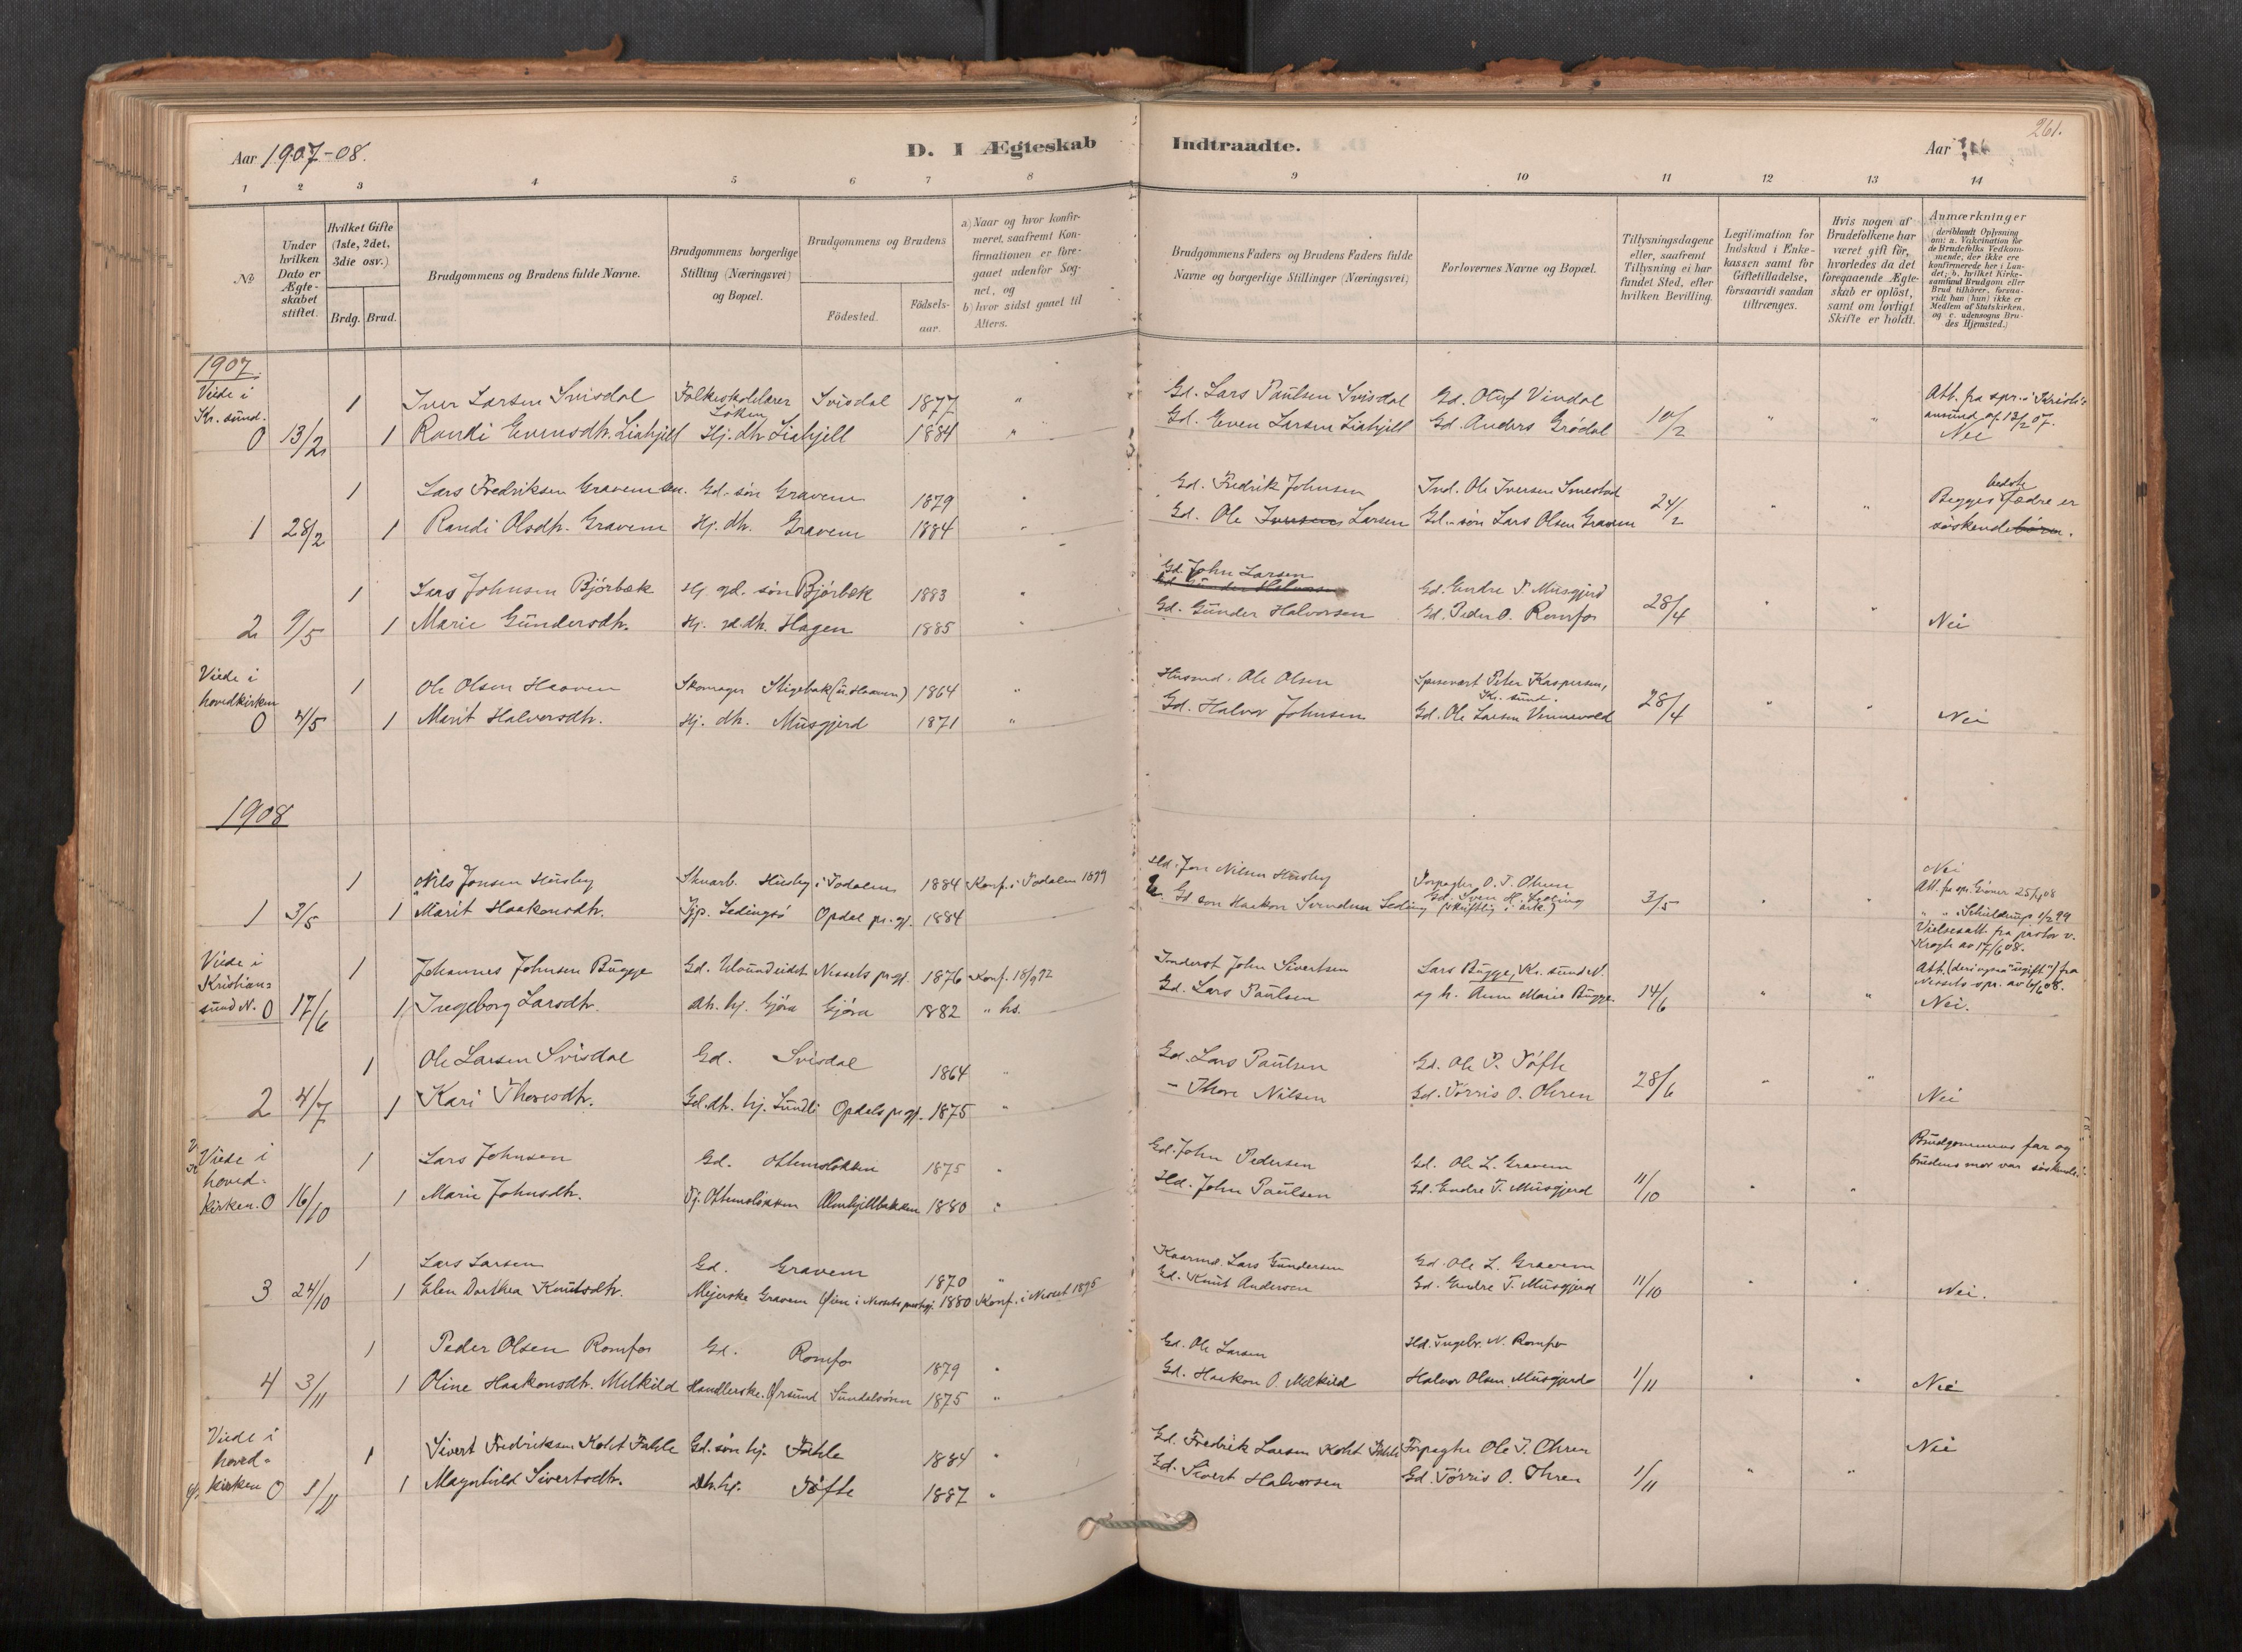 261.
Aar 1907-08.
D. I Ægteskab
Indtraadte.
Aar
1 2 3 4 5 6 7 8
9 10 11 12 13 14
№
Under hvilken Dato er Ægteskabet stiftet.
Hvilket Gifte (1ste, 2det, 3die osv.)
Brdg. Brud.
Brudgommens og Brudens fulde Navne.
Brudgommens borgerlige Stilling (Næringsvei) og Bopæl.
Brudgommens og Brudens
Födested.
Födsels-aar.
a) Naar og hvor konfirmeret, saafremt Konfirmationen er foregaaet udenfor Sognet, og
b) hvor sidst gaaet til Alters.
Brudgommens Faders og Brudens Faders fulde Navne og borgerlige Stillinger (Næringsvei)
Forlovernes Navne og Bopæl.
Tillysningsdagene eller, saafremt Tillysning ei har fundet Sted, efter hvilken Bevilling.
Legitimation for Indskud i Enkekassen samt for Giftetilladelse, forsaavidt saadan tiltrænges.
Hvis nogen af Brudefolkene har været gift för, hvorledes da det foregaaende Ægteskab er oplöst, samt om lovligt Skifte er holdt.
Anmærkninger (deriblandt Oplysning om: a. Vakcination for de Brudefolks Vedkommende, der ikke ere konfirmerede her i Landet; b. hvilket Kirkesamfund Brudgom eller Brud tilhører, forsaavidt han (hun) ikke er Medlem af Statskirken, og c. udensogns Brudes Hjemsted.)
1907.
Viede i
Kr. sund.
1 Iver Larsen Svisdal Folkeskolelærer Løken Svisdal 1877 " Gd. Lars Paulsen Svisdal Gd. Oluf Vindal
0 13/2 1 Randi Evensdtr. Liahjell Hj. dtr Liahjell 1884 " Gd. Even Larsen Liahjell Gd. Anders Grødal 10/2 " "
Att. fra spr. i Kristi-
ansund af 12/2 07.
Nei
1 Lars Fredriksen Gravem sen. Gd.-søn Gravem 1879 " Gd. Fredrik Johnsen Ind. Ole Iversen Smestad
1 28/2 1 Randi Olsdtr. Gravem Hj. dtr. Gravem 1884 " Gd. Ole Iversen Larsen Gd.-søn Lars Olsen Gravem 24/2 " "
bedste
Begges fædre er
søskendebørn.
1 Lars Johnsen Bjørbæk Hj. gd. søn Bjørbæk 1883 " Gd. John Larsen Gd. Endre T. Musgjerd
Gd. Gunder Halvorsen
2 9/5 1 Marie Gundersdtr. Hj. gd. dtr. Hagen 1885 " Gd. Gunder Halvorsen Gd. Peder O. Romfo 28/4 " " Nei
Viede i
hovedkirken
1 Ole Olsen Haaven Skomager Stigebak (u. Haaven) 1864 " Husmd. Ole Olsen Spisevært Peter Kaspersen,
Kr. sund.
0 4/5 1 Marit Halvorsdtr. Hj. dtr. Musgjerd 1871 " Gd. Halvor Johnsen Gd. Ole Larsen Vinnevold 28/4 " " Nei
1908
1 Nils Jonsen Husby Skuarb. Husby i Todalen 1884 Konf. i Todalen 1899 Hd. Jon Nilsen Husby Forpagter O. T. Ohren
1 3/5 1 Marit Haakonsdtr. Tjp. Sedingsø Opdal pr.gj. 1884 Gd. søn Haakon Svendsen Seding Gd. Sven H. Seding
(skriftlig i ark.) 3/5
Nei
Att. fra spr. Grøner 25/4 08
" " Schielderup 1/2 99
Vielsesatt. fra pastor v.
Krogh av 17/6 08.
Viede i
Kristian-
sund N.
1 Johannes Johnsen Bugge Gd. Uloundeidet Nessets pr.gj. 1876 Konf. 18/9 92 Inderst John Sivertsen Lars Bugge, Kr. sund N.
0 17/6 1 Ingeborg Larsdtr. dtr. hj. Gjøra Gjøra 1882 " hs. Gd. Lars Paulsen og h. Ann Marie Bugge. 14/6 " "
Att. (deri ogsaa "ugift") fra
Nessets spr. av 6/6 08.
Nei.
1 Ole Larsen Svisdal Gd. Svisdal 1864 " Gd. Lars Paulsen Gd. Ole P. Tøfte
2 4/7 1 Kari Thoresdtr. Gd. dtr. hj. Sundli Opdals pr.gj. 1875 " - Thore Nilsen Gd. Tørris O. Ohren 28/6 " " Nei
Viede i
hoved-
kirken.
1 Lars Johnsen Gd. Ottemsløkken 1875 " Gd. John Pedersen Gd. Ole L. Gravem
0 16/10 1 Marie Johnsdtr. Tj. Ottemsløkken Almhjellbakken 1880 " Hd. John Paulsen Gd. Endre T. Musgjerd 11/10 " "
Brudgommens far og
brudens mor var søskende.
1 Lars Larsen Gd. Gravem 1870 " Kaarmd. Lars Gundersen Gd. Ole L. Gravem
3 24/10 1 Elen Dorthea Knutsdtr. Mejerske Gravem Øien i Nessets prestgj. 1880 Konf. i Nesset 1895 Gd. Knut Andersen Gd. Endre T. Musgjerd 11/10 " " Nei.
1 Peder Olsen Romfo Gd. Romfo 1879 " Gd. Ole Larsen Hd. Ingebr. N. Romfo
4 3/11 1 Oline Haakonsdtr. Melkild Handlerske. Ørsund Sundalsøren 1875 " Gd. Haakon O. Melkild Halvor Olsen Musgjerd 1/11 " " Nei
Viede i
hoved-
kirken
1 Sivert Fredriksen Koht Fahle Gd. søn hj. Fahle 1884 " Gd. Fredrik Larsen Koht Fahle Forpagter Ole T. Ohren Nei
0 1/11 1 Magnhild Sivertsdtr. Dtr. hj. Tøfte 1887 " Gd. Sivert Halvorsen Gd. Tørris O. Ohren 1/11 " "